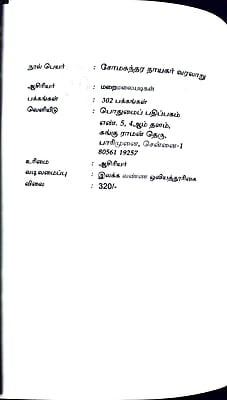 நூல் பெயர் : சோமசுந்தர நாயகர் வரலாறு
ஆசிரியர் : மறைமலையடிகள்
பக்கங்கள் : 302 பக்கங்கள்
வெளியீடு : பொதுமைப் பதிப்பகம்
எண். 5, 4ஆம் தளம்,
கங்கு ராமன் தெரு,
பாரிமுனை, சென்னை-1
80561 19257
உரிமை : ஆசிரியர்
வடிவமைப்பு : இலக்க வண்ண ஒளியத்தூரிகை
விலை : 320/-